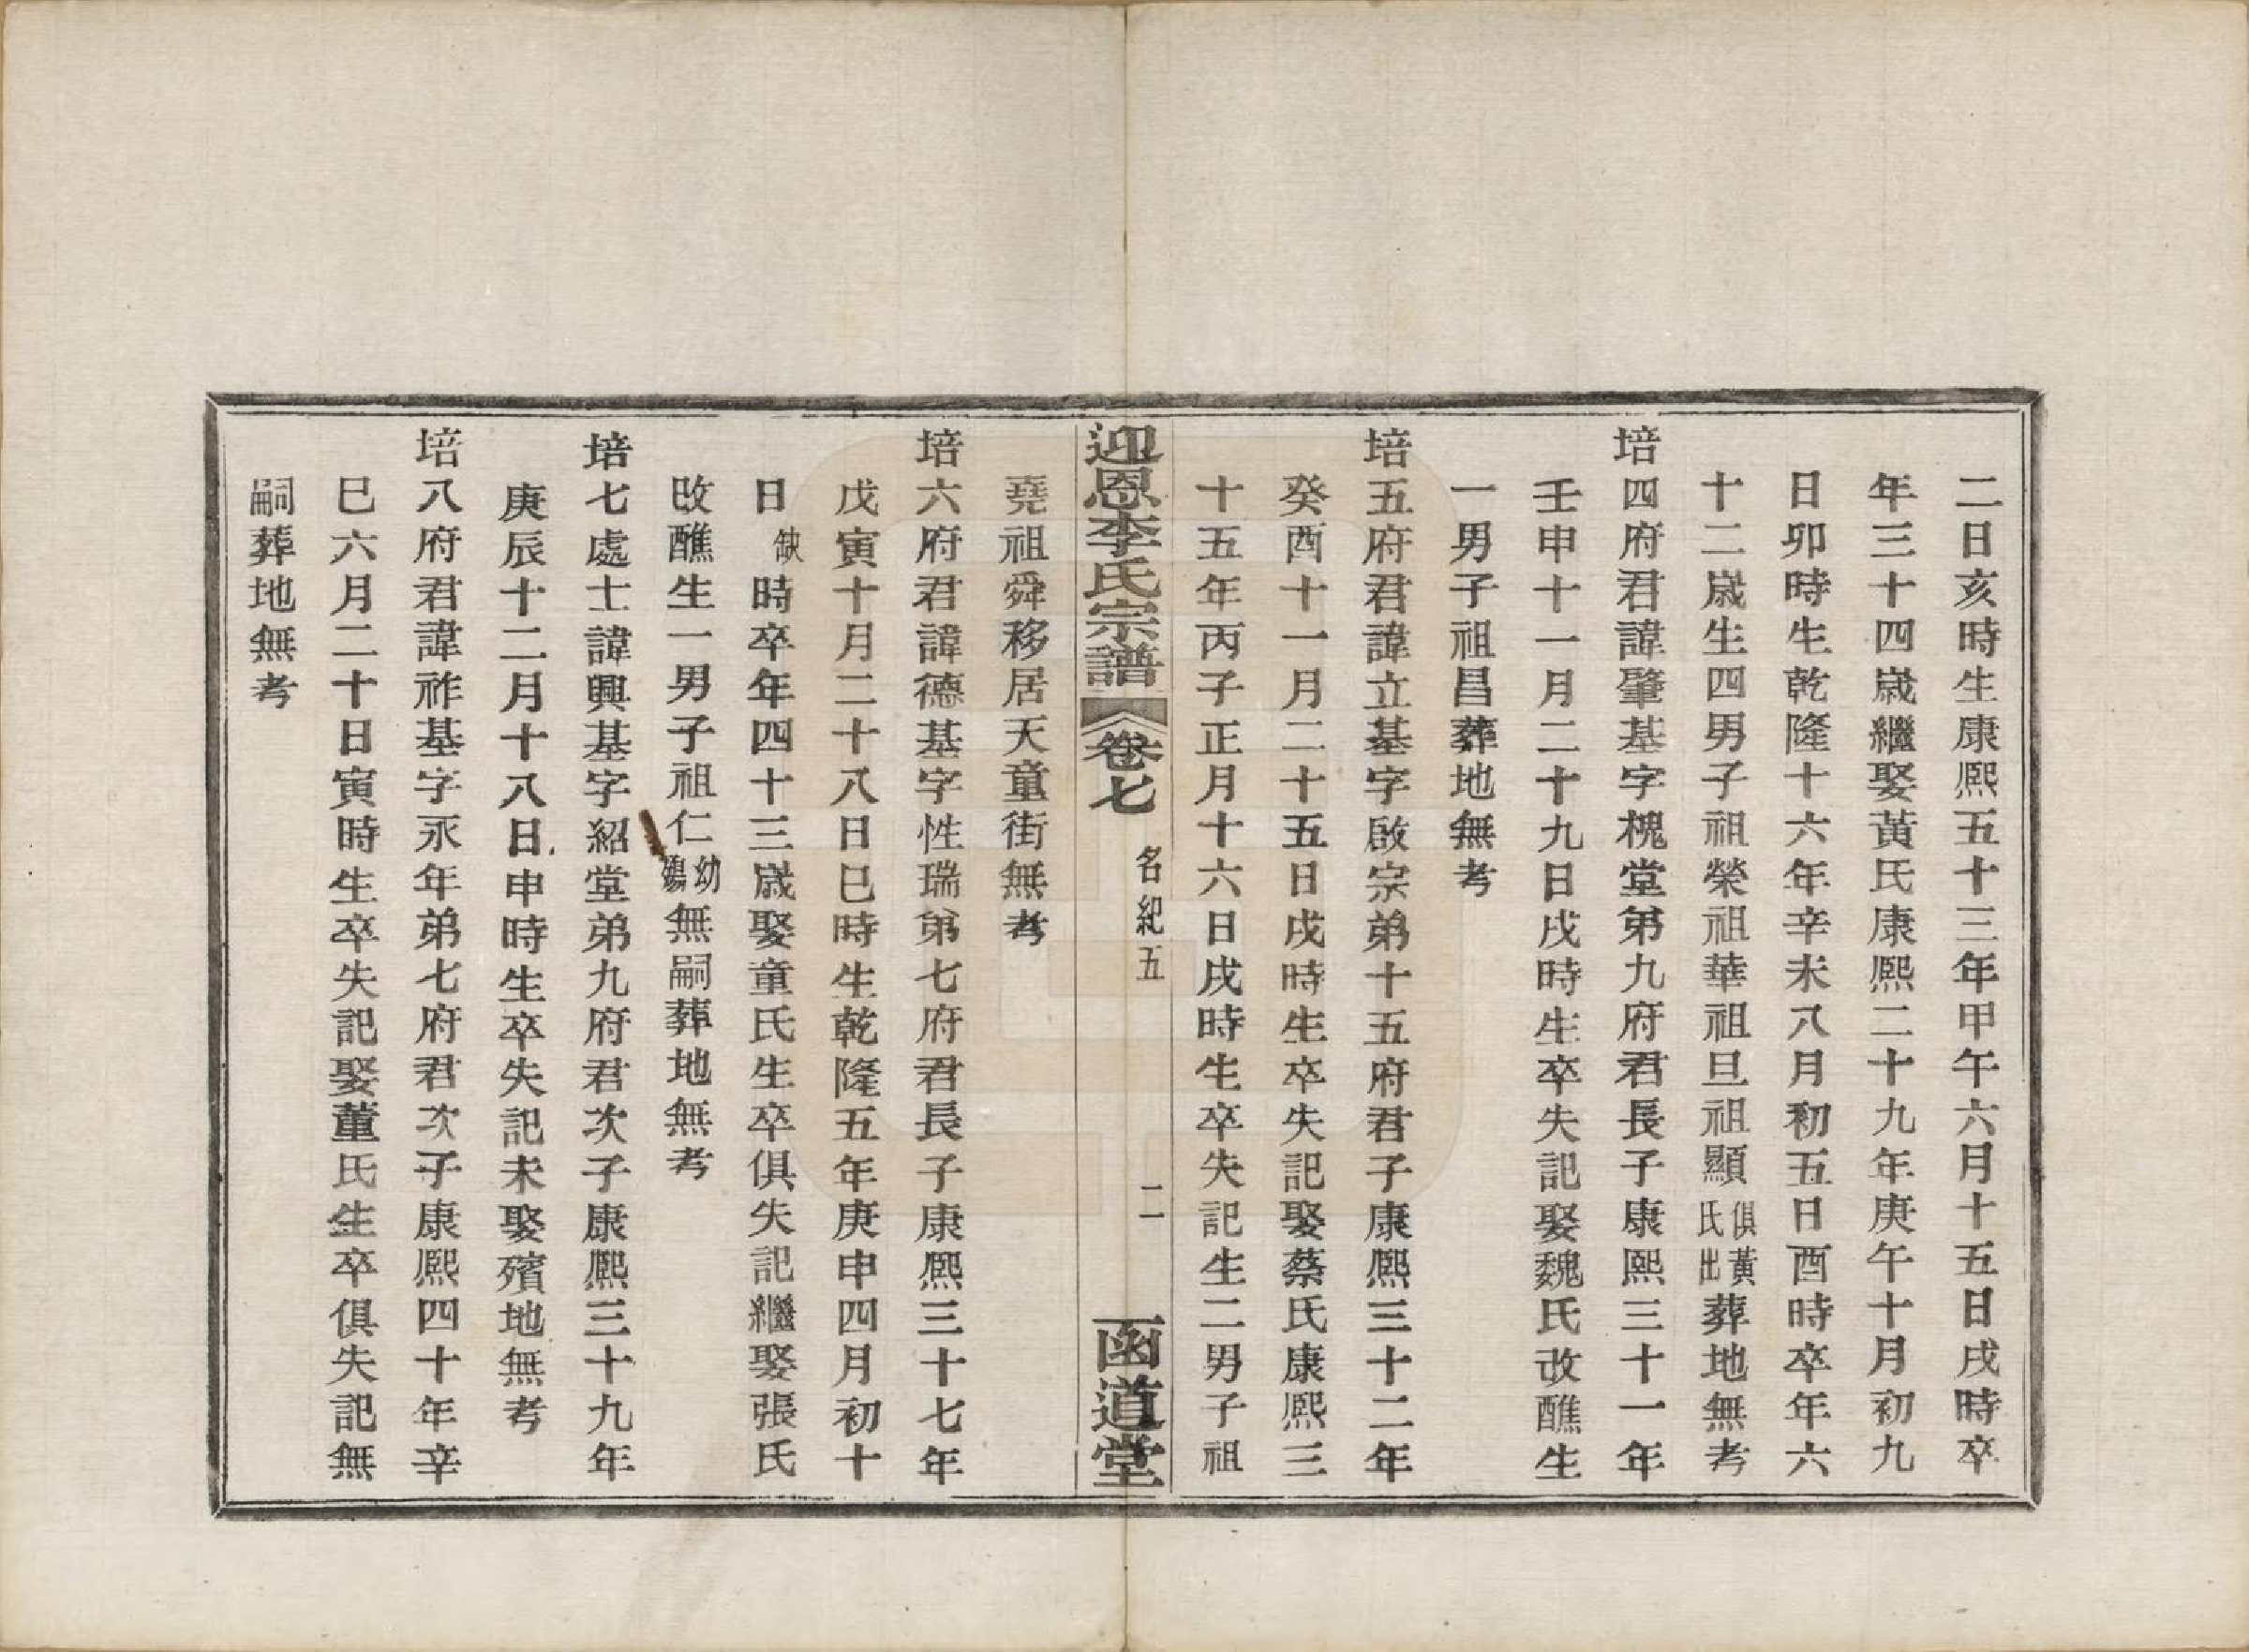 二日亥時生康熙五十三年甲午六月十五日戌時卒
年三十四歲繼娶黃氏康熙二十九年庚午十月初九
日卯時生乾隆十六年辛未八月初五日酉時卒年六
十二歲生四男子祖榮祖華祖旦祖顯俱黃氏出葬地無考
培四府君諱肇基字槐堂第九府君長子康熙三十一年
壬申十一月二十九日戌時生卒失記娶魏氏改醮生
一男子祖昌葬地無考
培五府君諱立基字啟宗弟十五府君子康熙三十二年
癸酉十一月二十五日戌時生卒失記娶蔡氏康熙三
十五年丙子正月十六日戌時生卒失記生二男子祖
迎恩李氏宗譜 卷七 名紀五 二 函道堂
堯祖舜移居天童街無考
培六府君諱德基字性瑞第七府君長子康熙三十七年
戊寅十月二十八日巳時生乾隆五年庚申四月初十
日缺時卒年四十三歲娶童氏生卒俱失記繼娶張氏
改醮生一男子祖仁幼殤無嗣葬地無考
培七處士諱興基字紹堂弟九府君次子康熙三十九年
庚辰十二月十八日申時生卒失記未娶殯地無考
培八府君諱祚基字永年弟七府君次子康熙四十年辛
巳六月二十日寅時生卒失記娶董氏生卒俱失記無
嗣葬地無考